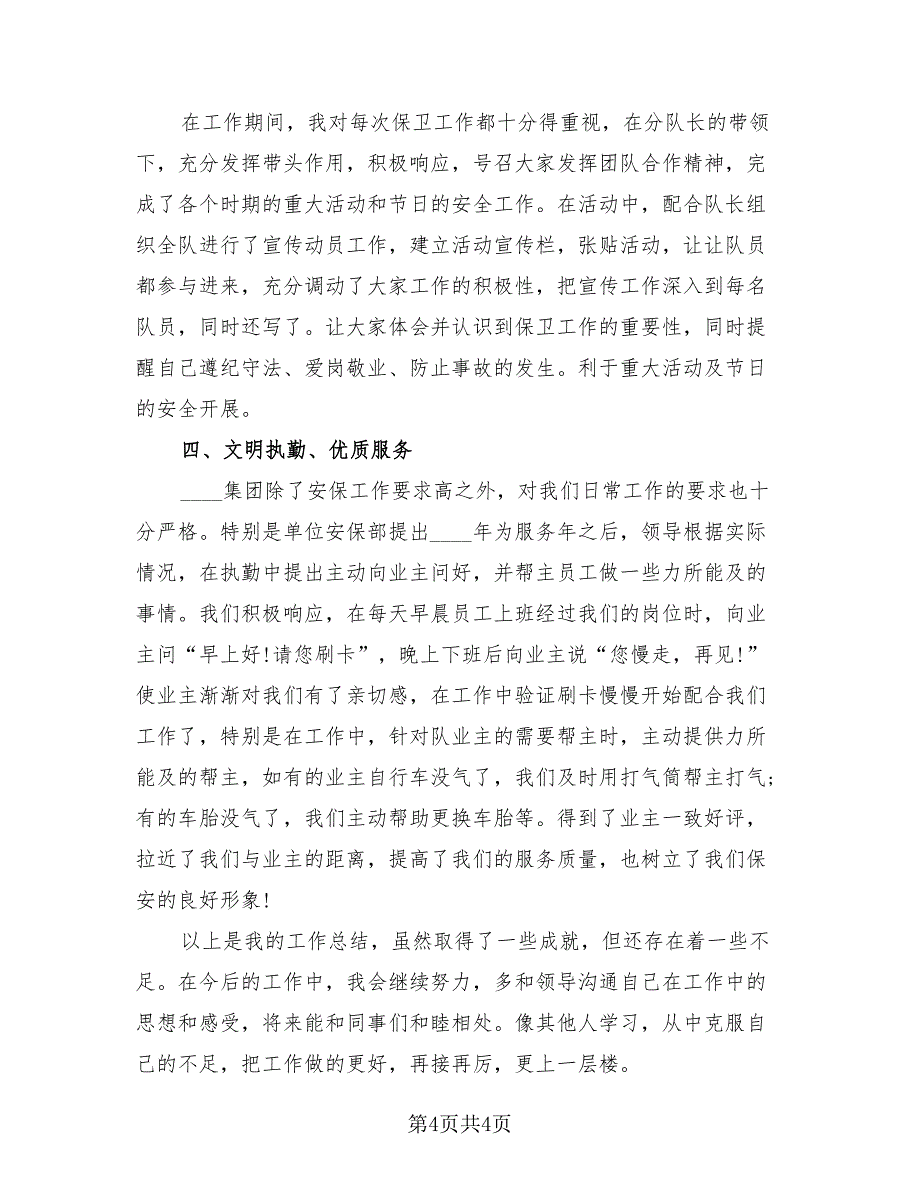 在工作期间，我对每次保卫工作都十分得重视，在分队长的带领
下，充分发挥带头作用，积极响应，号召大家发挥团队合作精神，完
成了各个时期的重大活动和节日的安全工作。在活动中，配合队长组
织全队进行了宣传动员工作，建立活动宣传栏，张贴活动，让让队员
都参与进来，充分调动了大家工作的积极性，把宣传工作深入到每名
队员，同时还写了。让大家体会并认识到保卫工作的重要性，同时提
醒自己遵纪守法、爱岗敬业、防止事故的发生。利于重大活动及节日
的安全开展。
四、文明执勤、优质服务
____集团除了安保工作要求高之外，对我们日常工作的要求也十
分严格。特别是单位安保部提出____年为服务年之后，领导根据实际
情况，在执勤中提出主动向业主问好，并帮主员工做一些力所能及的
事情。我们积极响应，在每天早晨员工上班经过我们的岗位时，向业
主问“早上好!请您刷卡”，晚上下班后向业主说“您慢走，再见!”
使业主渐渐对我们有了亲切感，在工作中验证刷卡慢慢开始配合我们
工作了，特别是在工作中，针对队业主的需要帮主时，主动提供力所
能及的帮主，如有的业主自行车没气了，我们及时用打气筒帮主打气;
有的车胎没气了，我们主动帮助更换车胎等。得到了业主一致好评，
拉近了我们与业主的距离，提高了我们的服务质量，也树立了我们保
安的良好形象!
以上是我的工作总结，虽然取得了一些成就，但还存在着一些不
足。在今后的工作中，我会继续努力，多和领导沟通自己在工作中的
思想和感受，将来能和同事们和睦相处。像其他人学习，从中克服自
己的不足，把工作做的更好，再接再厉，更上一层楼。
第4页共4页